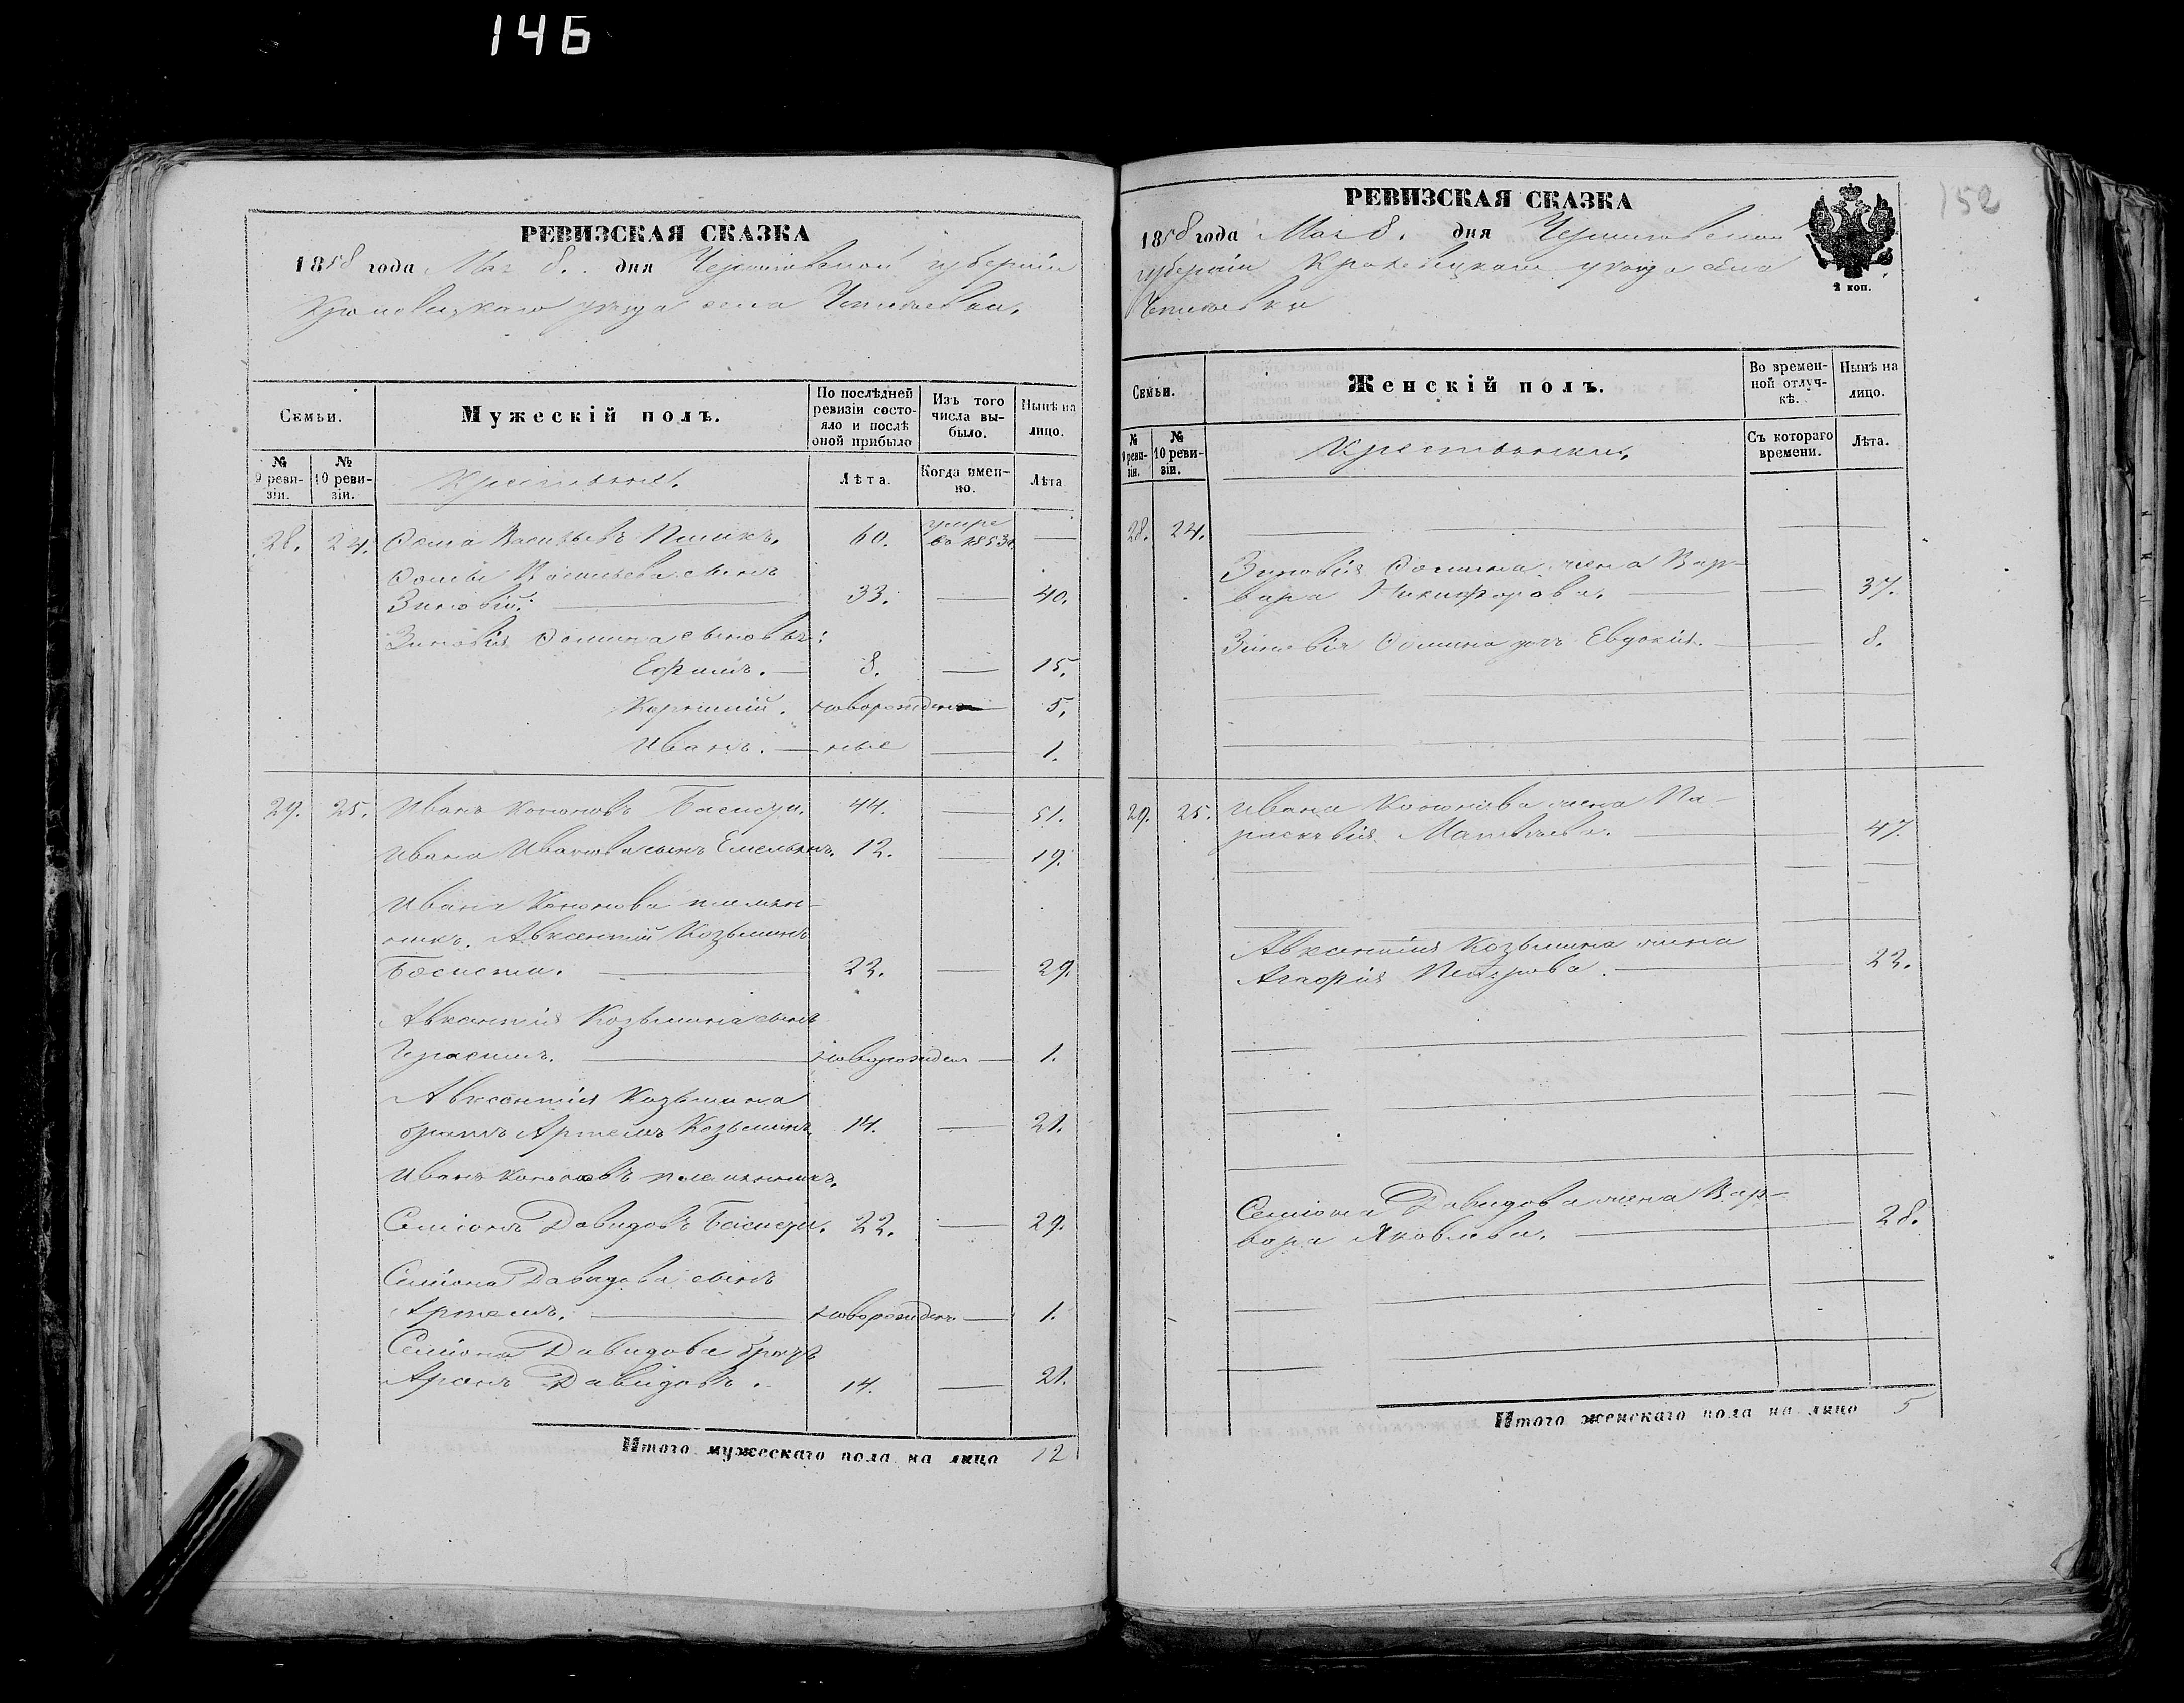 146
РЕВИЗСКАЯ СКАЗКА
1858 года Мая 8. дня Черниговской губерніи
Кролевецкаго уѣзда села
Семьи.
Мужескій полъ.
По послѣдней ревизіи состояло и послѣ оной прибыло
Изъ того числа выбыло.
Нынѣ на лицо.
№ 9 ревизіи.
№ 10 ревизіи.
Крестьяне.
Лѣта.
Когда именно.
Лѣта.
28. 24. Ѳома Васильевъ 60. умре въ 1853
Ѳомы Васильева сынъ
Зиновій. 33. 40.
Зиновія Ѳомина сыновья:
Ефимъ. 8. 15.
новорожден 5.
Иванъ. ные 1.
29. 25. Иванъ Кононовъ 44. 51.
Ивана Иванова сынъ Емельянъ. 12. 19.
Ивана Кононова племян-
никъ. Авксентій Козьминъ
22. 29.
Авксентія Козьмина сынъ
Герасимъ. новорожден 1.
Авксентія Козьмина
братъ Артемъ Козьминъ. 14. 21.
Иванъ Кононовъ племянникъ.
Семіонъ Давидовъ 22. 29.
Семіона Давидова сынъ
Артемъ. новорожденъ 1.
Семіона Давидова братъ
Давидовъ. 14. 21.
Итого мужескаго пола на лицо 12
152
РЕВИЗСКАЯ СКАЗКА
1858 года Мая 8. дня Черниговской
губерніи Кролевецкаго уѣзда села
2 коп.
Семьи.
Женскій полъ.
Во временной отлучкѣ.
Нынѣ на лицо.
№ 9 ревизіи.
№ 10 ревизіи.
Крестьянки.
Съ котораго времени.
Лѣта.
28. 24.
Зиновія Ѳомина жена Вар-
вара Никифорова. 37.
Зиновія Ѳомина дочь Евдокія. 8.
29. 25. Ивана Кононова жена Па-
расковія Матвѣева. 47.
Авксентія Козьмина жена
Агафія Петрова. 22.
Семіона Давидова жена Вар-
вара Яковлева. 28.
Итого женскаго пола на лицо 5